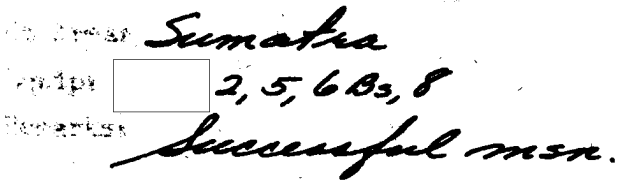 Sumatra
2, 5, 6 Bs, 8
Remarks: Successful msn.